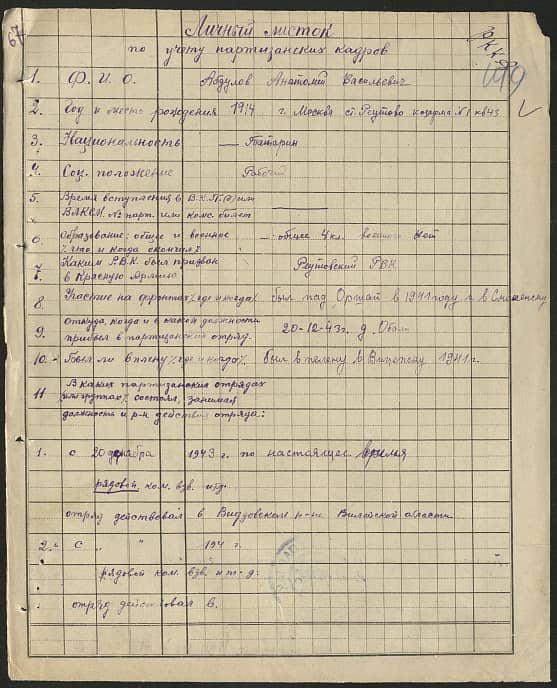 67
Личный листок
по учету партизанских кадров
1. Ф. И. О. Абдулов Анатолий Васильевич
2. Год и место рождения 1914 г. Москва ст. Реутово казарма №1 кв 43
3. Национальность — Татарин
4. Соц. положение Рабочий
5. Время вступления в В.К.П.(б) или
ВЛКСМ. № парт. или комс. билет —
6. Образование: общее и военное — общее 4 кл. военного нет
% что и когда окончил %
7. Каким Р.В.К. был призван Реутовский РВК
в Красную Армию
8. Участие на фронтах % где и когда % был под Оршай в 1941 году и в Смоленску
9. Откуда, когда и в какой должности 20-12-43г. д.
прибыл в партизанский отряд.
10. Был ли в плену % где и когда % был в плену в Витепску 1941 г.
11 В каких партизанских отрядах
% или группах % состоял, занимал
должность и р-н действия отряда:
1. с 20 декабря 1943 г. по настоящее время
рядовой ком. взв. и т.д.
отряд действовал в Видзовском р-не Вилейской области
2. с " " 194 г.
рядовой ком. взв. и т-д.
отряд действовал в.